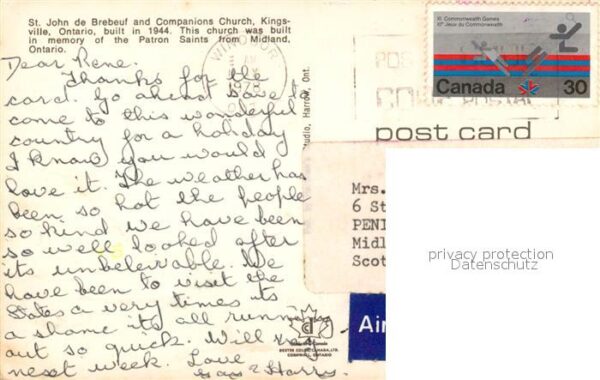 St. John de Brebeuf and Companions Church, Kings-
ville, Ontario, built in 1944. This church was built
in memory of the Patron Saints from Midland,
Ontario.
Dear Rene.
Thanks for the
card. Go ahead save to
come to this wonderful
country for a holiday
I know you would
love it. The weather has
been so hot the people
so kind we have been
so well looked after
its unbeleivable. We
have been to visit the
States a very times its
a shame its all running
out so quick. Will
next week. Love
& Harry
WINDSOR
1978
Studio, Harrow, Ont.
XI Commonwealth Games
XIes Jeux du Commonwealth
Canada 30
POS
post card
Mrs.
6 St
PENI
Midl
Scot
privacy protection
Datenschutz
Air
DEXTER COLOR CANADA, LTD.
CORNWALL, ONTARIO